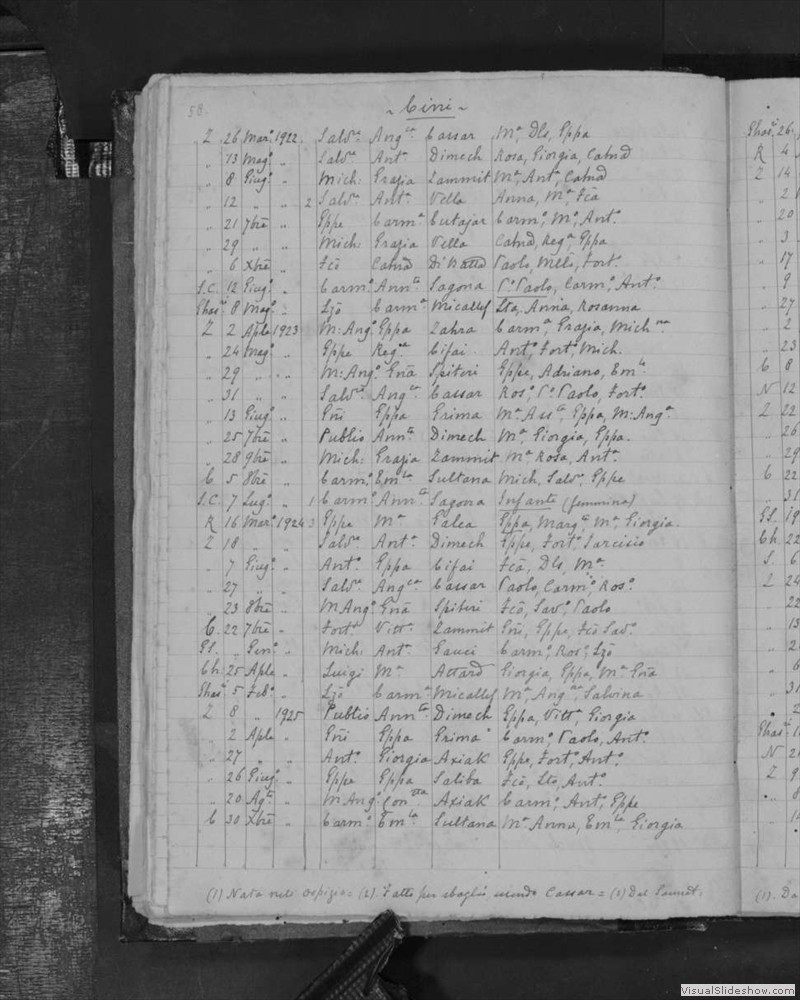 58.
- Cini -
Z 26 Mar. 1922. Salvre Angca Cassar Ma, Dls, Gppa
" 13 Mag. " Salvre Anta Dimech Rosa, Giorgia, Catna
" 8 Giugo " Mich: Grazia Zammit Ma, Anta, Catna
" 12 " " 2 Salvre Anta Vella Anna, Ma, Fca
" 21 7bre " Gppe Carma Cutajar Carmo, Ma, Anto
" 29 " " Mich: Grazia Vella Catna, Rega, Gppa
" 6 Xbre " Fco Catna Paolo, Fort.
S.C. 12 Giugo " Carmo Annta Sagona Po Paolo, Carmo, Anto
Ghasr 8 Mag. " Lzo Carma Micallef Lta, Anna, Rosanna
Z 2 Aple 1923 M:Ango Gppa Zahra Carma, Grazia, Mich
" 24 Mag. " Gppe Regna Cifai Anto, Forto, Mich.
" 29 " " M:Ango Gna Spiteri Gppe, Adriano, Emla
" 31 " " Salvre Angca Cassar Roso, Po Paolo, Forto
" 13 Giugo " Gni Gppa Grima Ma Assta, Gppa, M:Anga
" 25 7bre " Publio Annta Dimech Ma, Giorgia, Gppa.
" 28 9bre " Mich: Grazia Zammit Ma Rosa, Anta
C 5 8bre " Carmo Emla Sultana Mich, Salv, Gppe
S.C. 7 Lugo " 1 Carmo Annta Sagona Infante (femmina)
R 16 Mar. 1924 3 Gppe Ma Galea Gppa, Marga, Ma, Giorgia.
Z 18 " " Salvre Anta Dimech Gppe, Forto, Tarcisio
" 7 Giugo " Anto Gppa Cifai Fca, Dls, Ma
" 27 " " Salvre Angca Cassar Paolo, Carmo, Roso
" 23 8bre " M Ango Gna Spiteri Fco, Savo, Paolo
C. 22 7bre " Forto Vitta Zammit Gni, Gppe, Fco Savo
Gs. " Geno " Mich: Anta Gauci Carmo, Roso, Lzo
Ch. 25 Aple " Luigi Ma Attard Giorgia, Gppa, Ma, Gna
Ghasr 5 Febo " Lzo Carma Micallef Ma, Anga, Salvina
Z 8 " 1925 Publio Annta Dimech Gppa, Vitta, Giorgia
" 2 Aple " Gni Gppa Grima Carmo, Paolo, Anto
" 27 " " Anto Giorgia Axiak Gppe, Forto, Anto
" 26 Giugo " Gppe Gppa Saliba Fco, Lto, Anto
" 20 Agto " M Ango Axiak Carmo, Anto, Gppe
C 30 Xbre " Carmo Emla Sultana Ma Anna, Emla, Giorgia
(1) Nata nell' Ospizio = (2). Fatto per sbaglio essendo Cassar = (3) Dal
Ghasr 26.
R 4
Z 14
" 2
" 20
" 3
" 17
" 9
" 27
" 2
" 23
C 8
N 12
Z 22
" 26
" 29
C 22
Gs. 19
Ch. 22
S. 6
Z 24
22
" 13
N 21
Z 9
(1). Da
VisualSlideshow.com